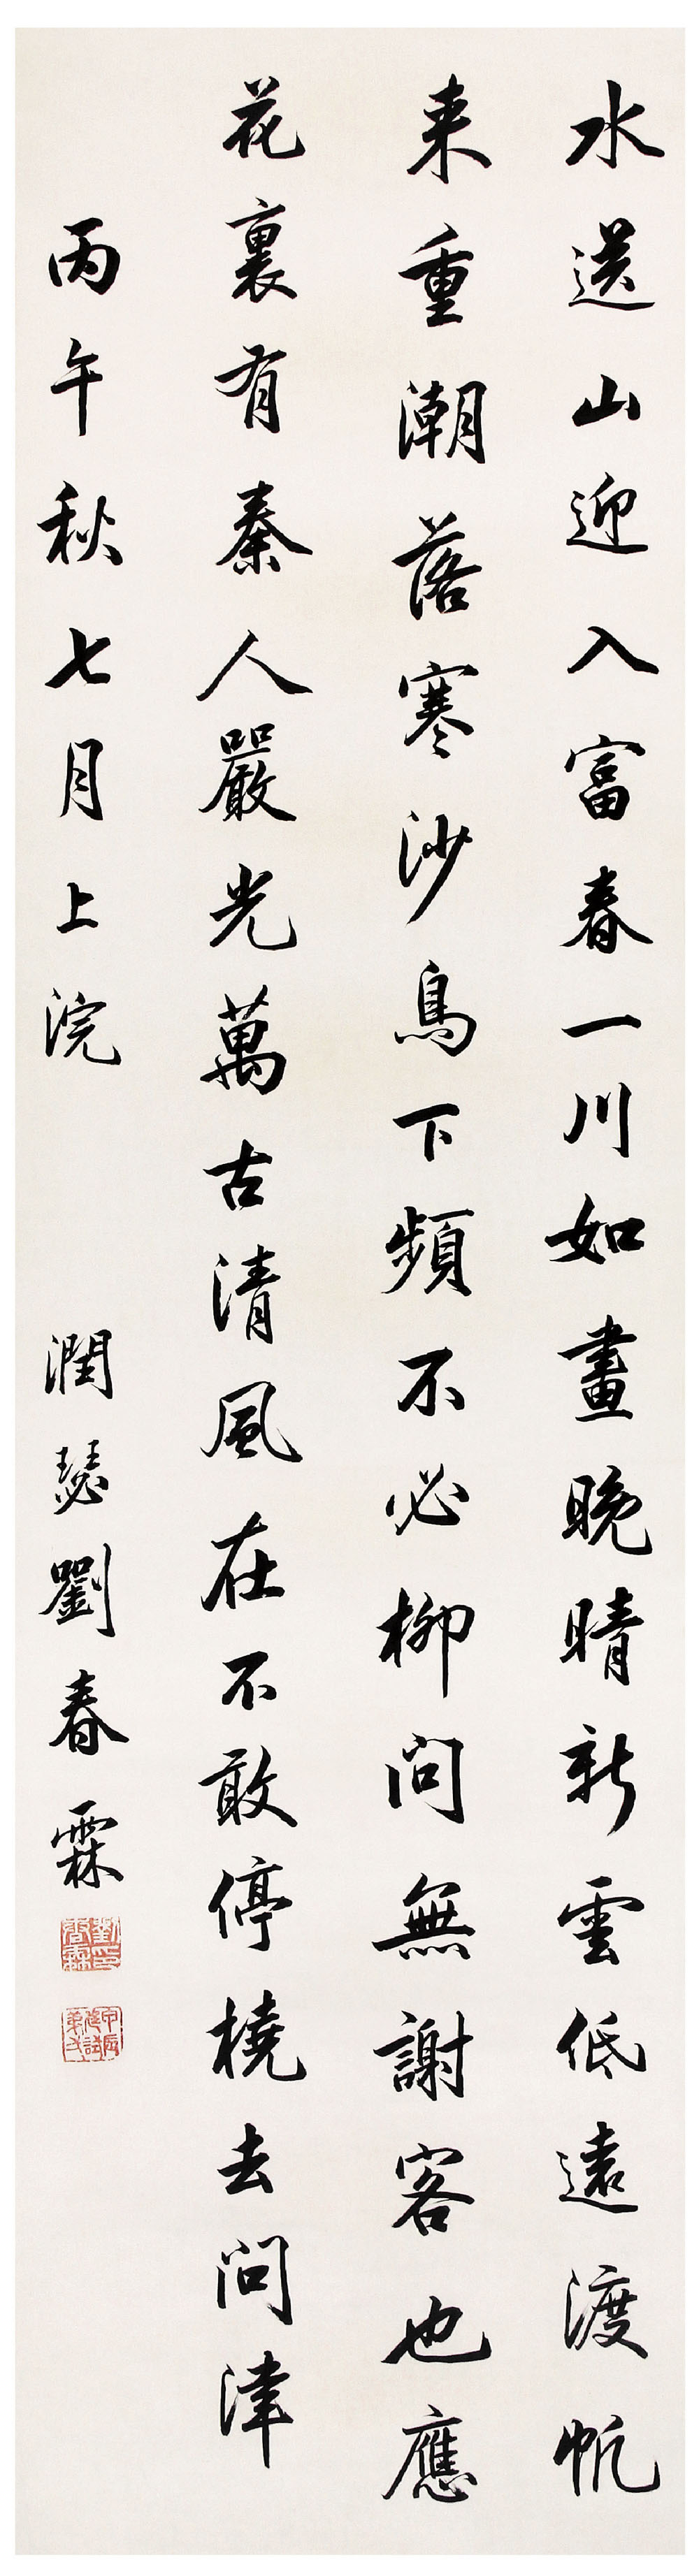 水送山迎入富春一川如畫晚晴新雲低遠渡帆
来重潮落寒沙鳥下頻不必柳問無謝客也應
花裏有秦人嚴光萬古清風在不敢停橈去問津
丙午秋七月上浣
潤琴劉春霖
劉春霖印
甲辰廷試第弌